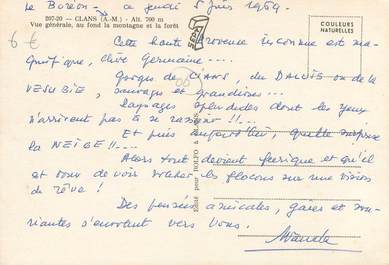 le Boréon - jeudi 5 juin 1969.
207-20 - CLANS (A.-M.) - Alt. 700 m
Vue générale, au fond la montagne et la forêt
COULEURS
NATURELLES
6 €
Cette haute Provence inconnue est ma-
gnifique, chère Germaine....
Gorges de CIANS, du DALUIS ou de la
VESUBIE, sauvages et grandioses...
paysages splendides dont les yeux
n'arrivent pas à se rassasier !!....
Et puis aujourd'hui, quelle surprise
la NEIGE !!----
Alors tout devient féerique et qu'il
est doux de voir les flocons sur une vision
de rêve !
Des pensées amicales, gaies et sou-
riantes s'envolent vers Vous.
Wanda